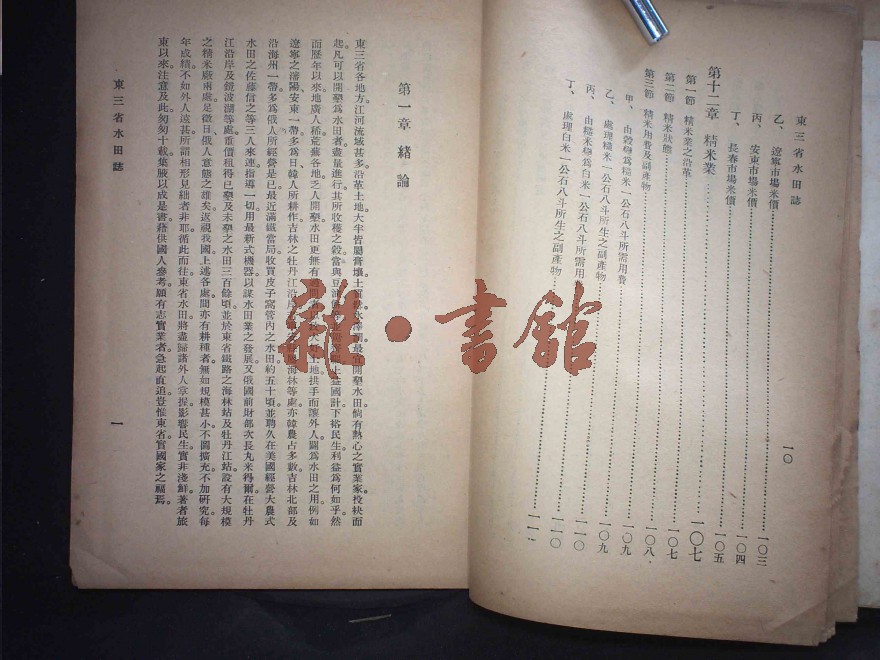 東三省水田誌
一〇
乙、遼寧市場米價……一〇三
丙、安東市場米價……一〇四
丁、長春市場米價……一〇五
第十二章 精米業……一〇七
第一節 精米業之沿革……一〇七
第二節 精米狀態……一〇七
第三節 精米用費及副產物……一〇八
甲、由穀爲糙米一公石八斗所需用費……一〇九
乙、處理糙米一公石八斗所生之副產物……一〇九
丙、由糙米爲白米一公石八斗所需用……一一〇
丁、處理白米一公石八斗所生之副產物……一一〇
第一章 緒論
東三省各地方。江河流域甚多。沿革土地。大半皆屬膏壤。土質最宜開墾水田。倘有熱心之實業家。投袂而
起。凡可以開墾爲水田者。盡量進行。其所收穫之穀。當與豆油上益國計。下裕民生。利益爲何如乎。然
而歷年以來。地廣人稀。荒蕪各地。乏人開墾。水田更無有過土地。拱手而讓外人。闢爲水田之用。例如
遼寧之瀋陽、安東一帶。多爲日、韓人所耕作。吉林之牡丹江沿海林等處。亦韓農占多數。吉林北部及
沿海州一帶。多爲俄人所經營是已。最近滿鐵當局收買皮子窩管內之水田約五十頃。並聘久在美國經營大農式
水田之佐藤信之等三人來連指導。一切用最新式機器。以謀水田業之發展。又俄國前財部次長丸米得爾。在牡丹
江沿岸及鏡波湖等處。重價租得已墾及未墾之水田三百餘頃。並於東省鐵路之海林站及牡丹江站。設有大規模
之精米廠兩處。足徵日、俄人意態之雄矣。返視我國。上述各處。間亦有耕種者。無如規模甚小。不圖擴充。不加研究。每
年成績。不如外人遠甚。所謂相形見絀者非耶。循此而往。東省水田。將盡歸諸外人掌握。影響民生。實非淺鮮。著者旅
東以來。注意及此。匆匆十載。集腋以成是書。藉供國人參考。願有志實業者。急起直追。豈惟東省。實國家之福焉。
東三省水田誌
一
雜·書館